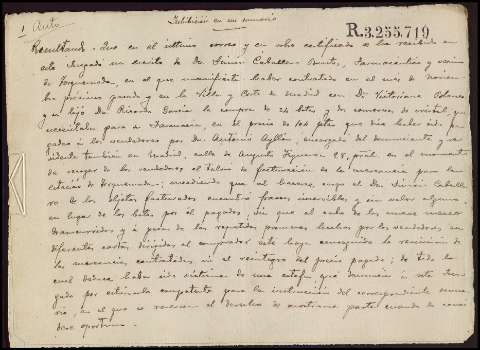 1 Auto
Inhibición en un sumario
R.3.255.719
Resultando. Que en el último correo y en sobre certificado se ha recibido en
este Juzgado un escrito de Dn. Simón Caballero Farmacéutico y vecino
de Torquemada, en el que manifiesta haber contratado en el mes de Noviem-
bre próximo pasado y en la Villa y Corte de Madrid con Dn. Victoriano
y su hijo Dn. Ricardo García la compra de 24 botes y dos de cristal que
necesitaba para su Farmacia, en el precio de 104 ptas que dice haber sido pa-
gadas á los vendedores por Dn. Antonio Ayllón, encargado del denunciante y re-
sidente también en Madrid, calle de Augusto Figueroa 28, pral. en el momento
de recoger de los vendedores el talón de facturación de la mercancía para la
estación de Torquemada; sucediendo que al hacerse cargo el Dn. Simón Caballe-
ro de los objetos facturados encontró frascos inservibles y sin valor alguno,
en lugar de los botes por él pagados; sin que al cabo de los nueve meses
transcurridos y á pesar de las repetidas promesas hechas por los vendedores, en
diferentes cartas dirigidas al comprador este haya conseguido la remisión de
las mercancías contratadas, ni el reintegro del precio pagado; de todo lo
cual deduce haber sido víctima de una estafa que denuncia á este Juz-
gado por estimarle competente para la instrucción del correspondiente suma-
rio, en el que se reserva el derecho de mostrarse parte cuando lo consi-
dere oportuno.